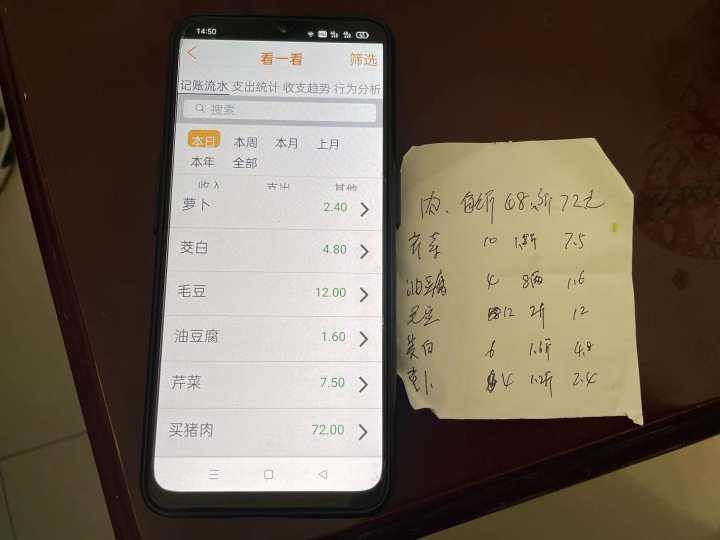 14:50
看一看
筛选
记账流水 支出统计 收支趋势 行为分析
搜索
本日 本周 本月 上月
本年 全部
收入 支出 其他
萝卜 2.40
茭白 4.80
毛豆 12.00
油豆腐 1.60
芹菜 7.50
买猪肉 72.00
肉、 72元
芹菜 10 7.5
油豆腐 4 8两 1.6
毛豆 12 2斤 12
茭白 6 1.6斤 4.8
萝卜 4 1.2斤 2.4